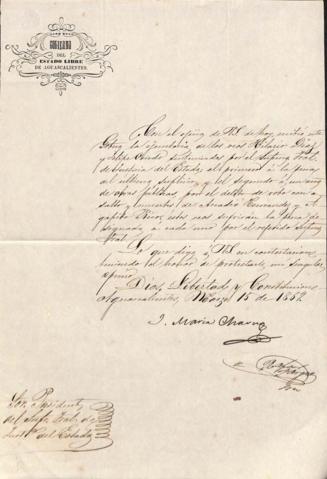 GOBIERNO
DEL
ESTADO LIBRE
DE AGUASCALIENTES.
Con el oficio de VS de hoy, recibió este
Gobno la ejecutoria de los reos Hilario Díaz
y sentenciados por el Supmo Tral.
de Justicia del Estado, el primero á la pena
del último suplicio, y el segundo á
de obras públicas, por el delito de robo con a-
salto y muertes de Amador Hernandez y A-
gapito Rios; estos reos sufrirán la pena de-
signada a cada uno por el repetido Supmo
Tral.
Lo que digo á VS en contestacion
teniendo el honor de protestarle mi singular
aprecio.
Dios, Libertad y Constitucion
Aguascalientes, Marzo 15 de 1862
J. Maria Chavez
Sor. Presidente
del Supo Tral. de
Justa. del Estado